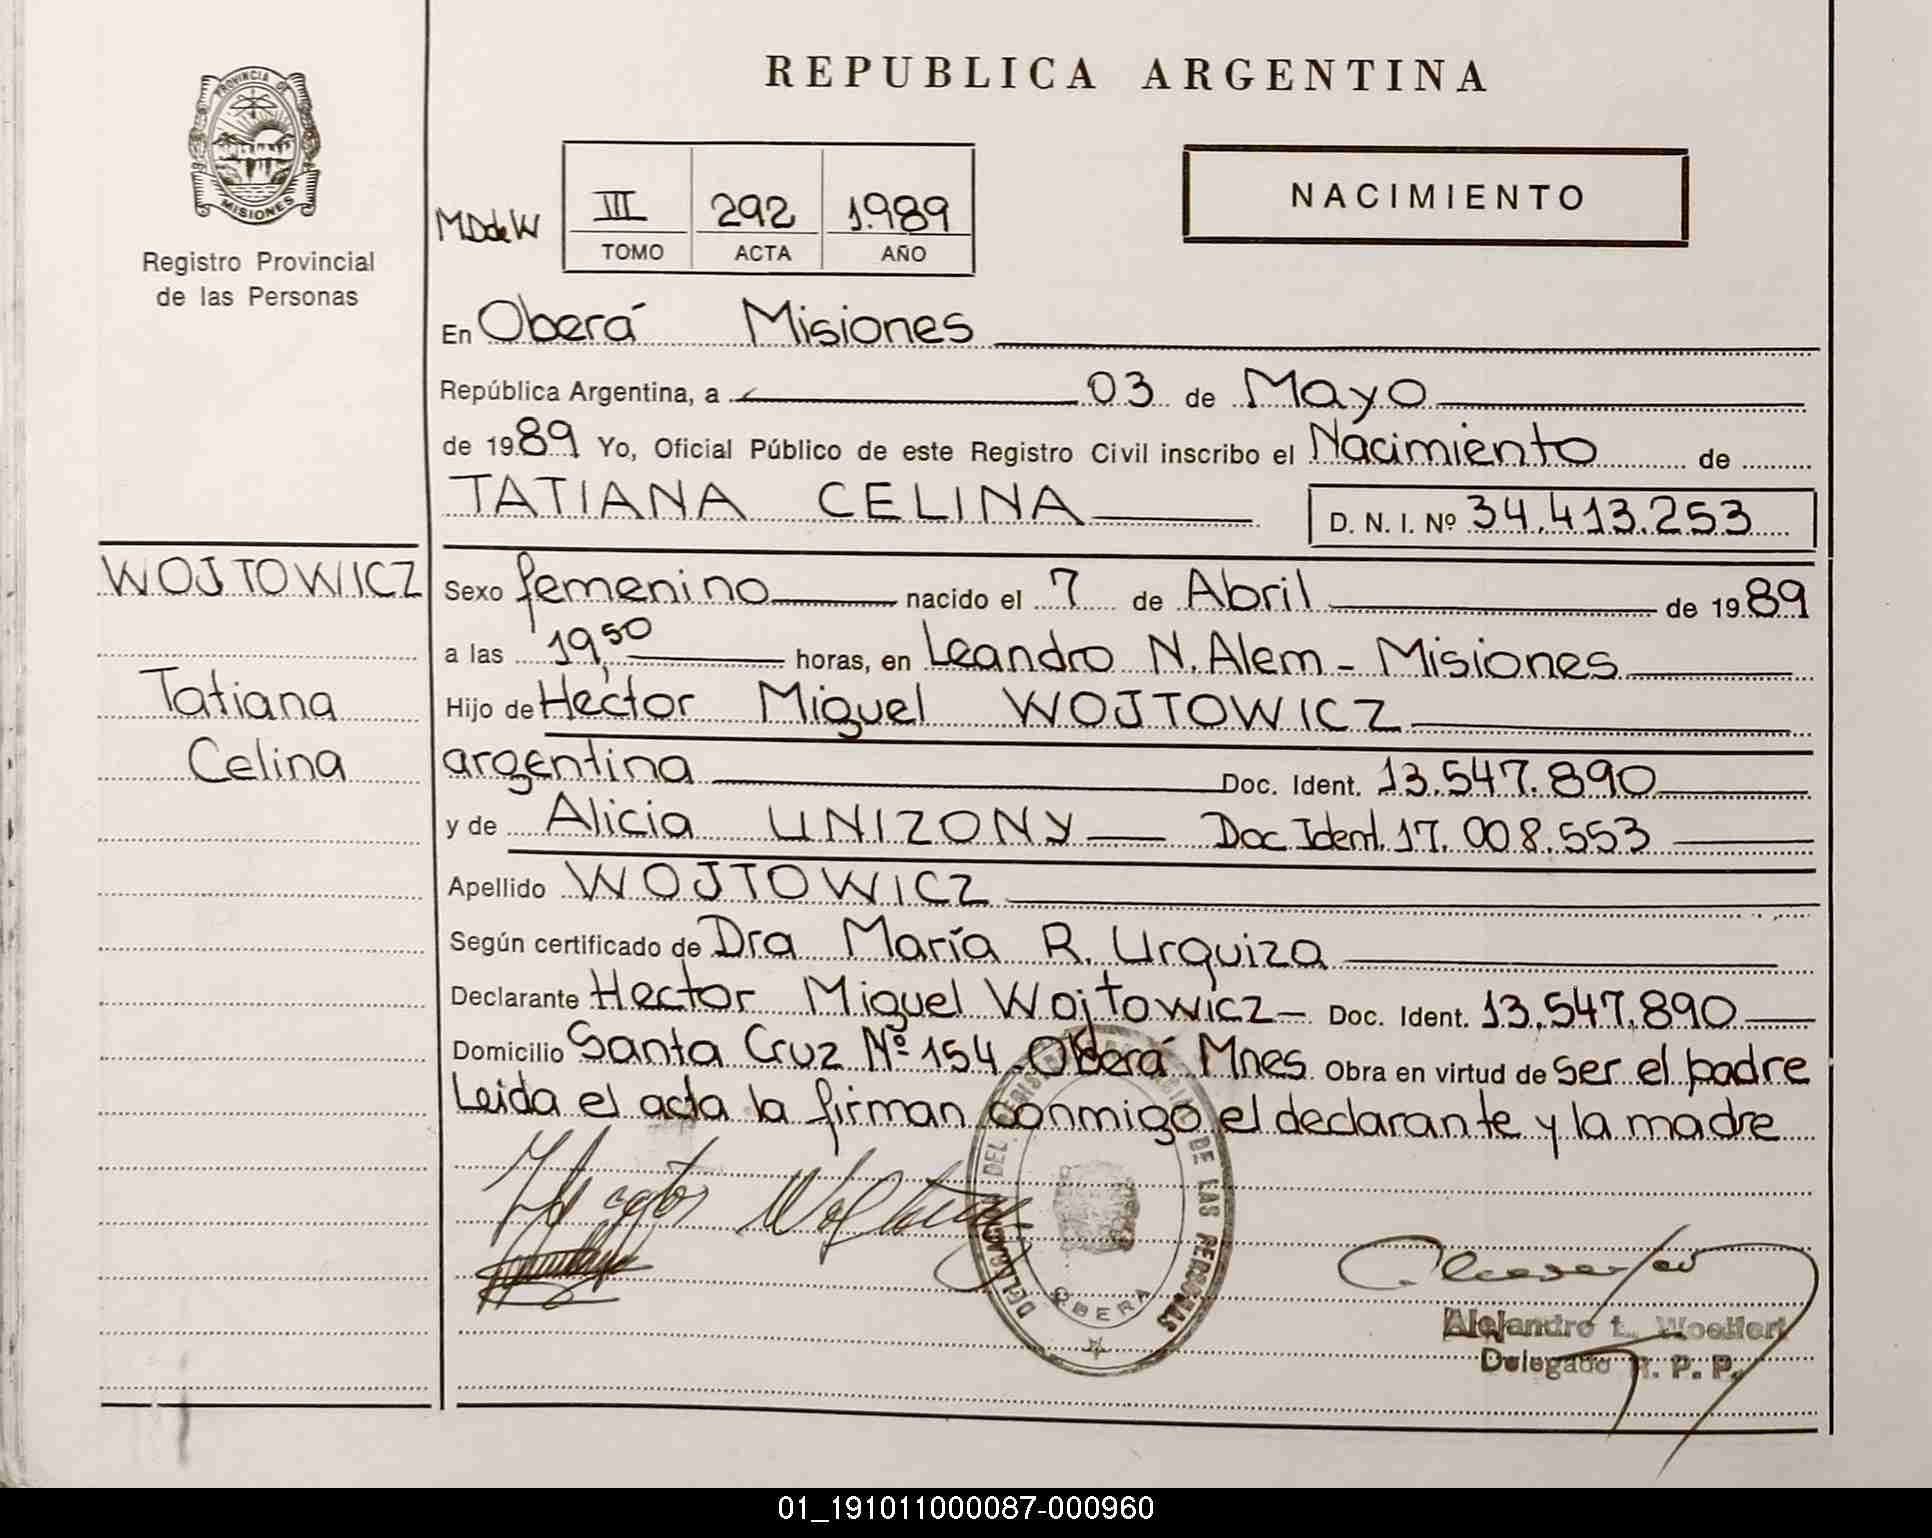 REPUBLICA ARGENTINA
PROVINCIA DE
MISIONES
Registro Provincial
de las Personas
M.D de W
III 292 1.989
TOMO ACTA AÑO
NACIMIENTO
En Oberá Misiones
República Argentina, a 03 de Mayo
de 1989 Yo, Oficial Público de este Registro Civil inscribo el Nacimiento de
TATIANA CELINA D. N. I. Nº 34.413.253
WOJTOWICZ
Tatiana
Celina
Sexo femenino nacido el 7 de Abril de 1989
a las 19,50 horas, en Leandro N. Alem - Misiones
Hijo de Hector Miguel WOJTOWICZ
argentina Doc. Ident. 13.547.890
y de Alicia UNIZONY Doc Ident. 17.008.553
Apellido WOJTOWICZ
Según certificado de Dra María R. Urquiza
Declarante Hector Miguel Wojtowicz - Doc. Ident. 13.547.890
Domicilio Santa Cruz Nº 154 - Oberá Mnes Obra en virtud de ser el padre
Leida el acta la firman conmigo el declarante y la madre
DE LAS PERSONAS
OBERA
Alejandro L. Woelfert
Delegado R. P. P.
01_191011000087-000960